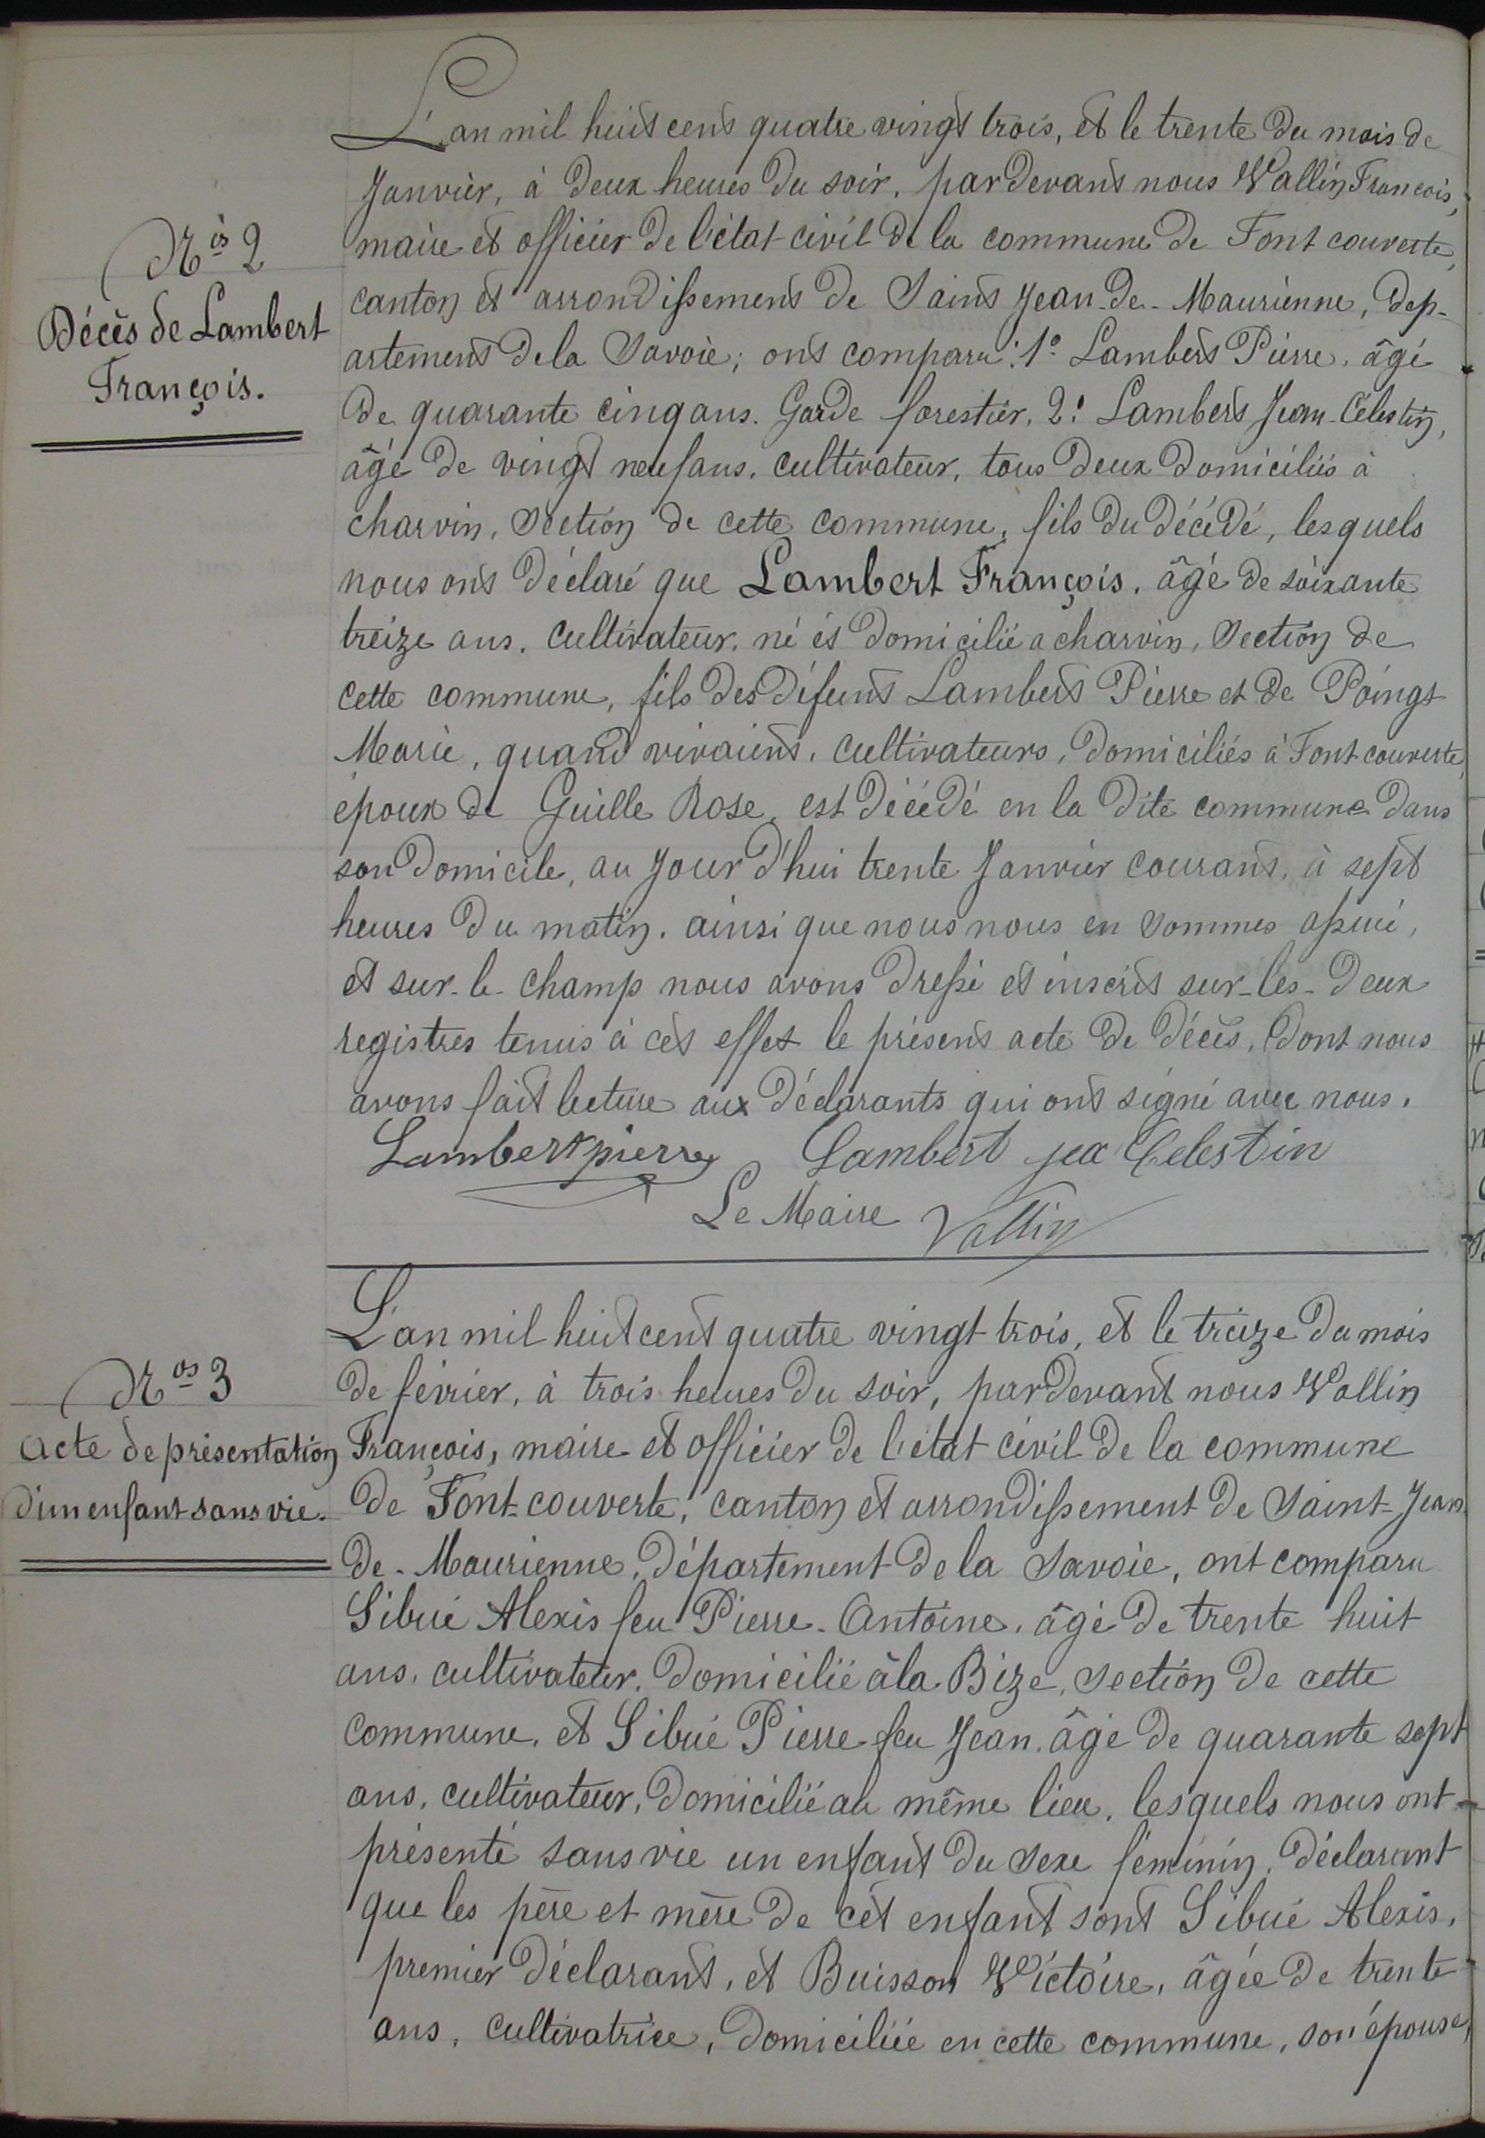 L'an mil huit cent quatre vingt trois, et le trente du mois de
Janvier, à deux heures du soir, par devant nous Vallin François,
maire et officier de l'état civil de la commune de Font couverte,
Nos 2
canton et arrondissement de Saint Jean-de-Maurienne, dép-
Décès de Lambert
François.
artement de la Savoie; ont comparu: 1º Lambert Pierre, âgé
de quarante cinq ans. Garde forestier, 2º Lambert Jean-Célestin,
âgé de vingt neuf ans, cultivateur, tous deux domiciliés à
charvin, Section de cette commune, fils du décédé, lesquels
nous ont déclaré que Lambert François, âgé de soixante
treize ans, cultivateur, né et domicilié a charvin, Section de
cette commune, fils des défunts Lambert Pierre et de Poingt
Marie, quand vivaient, cultivateurs, domiciliés à Font couverte,
époux de Guille Rose, est décédé en la dite commune dans
son domicile, au jour d'hui trente Janvier courant, à sept
heures du matin, ainsi que nous nous en sommes assuré,
et sur-le-champ nous avons dressé et inscrit sur-les-deux
registres tenus à cet effet le présent acte de décès, dont nous
avons fait lecture aux déclarants qui ont signé avec nous.
Lambert pierre Lambert jea Celestin
Le Maire Vallin
L'an mil huit cent quatre vingt trois, et le treize du mois
Nos 3
de février, à trois heures du soir, par devant nous Vallin
acte de présentation
François, maire et officier de l'état civil de la commune
d'un enfant sans vie.
de Font-couverte, canton et arrondissement de Saint-Jean
de-Maurienne, département de la Savoie, ont comparu
Sibué Alexis feu Pierre-Antoine, âgé de trente huit
ans, cultivateur, domicilié à la Bize, section de cette
commune, et Sibué Pierre feu Jean, âgé de quarante sept
ans, cultivateur, domicilié au même lieu, lesquels nous ont
présenté sans vie un enfant du sexe féminin, déclarant
que les père et mère de cet enfant sont Sibué Alexis,
premier déclarant, et Buisson Victoire, âgée de trente
ans, cultivatrice, domiciliée en cette commune, son épouse,